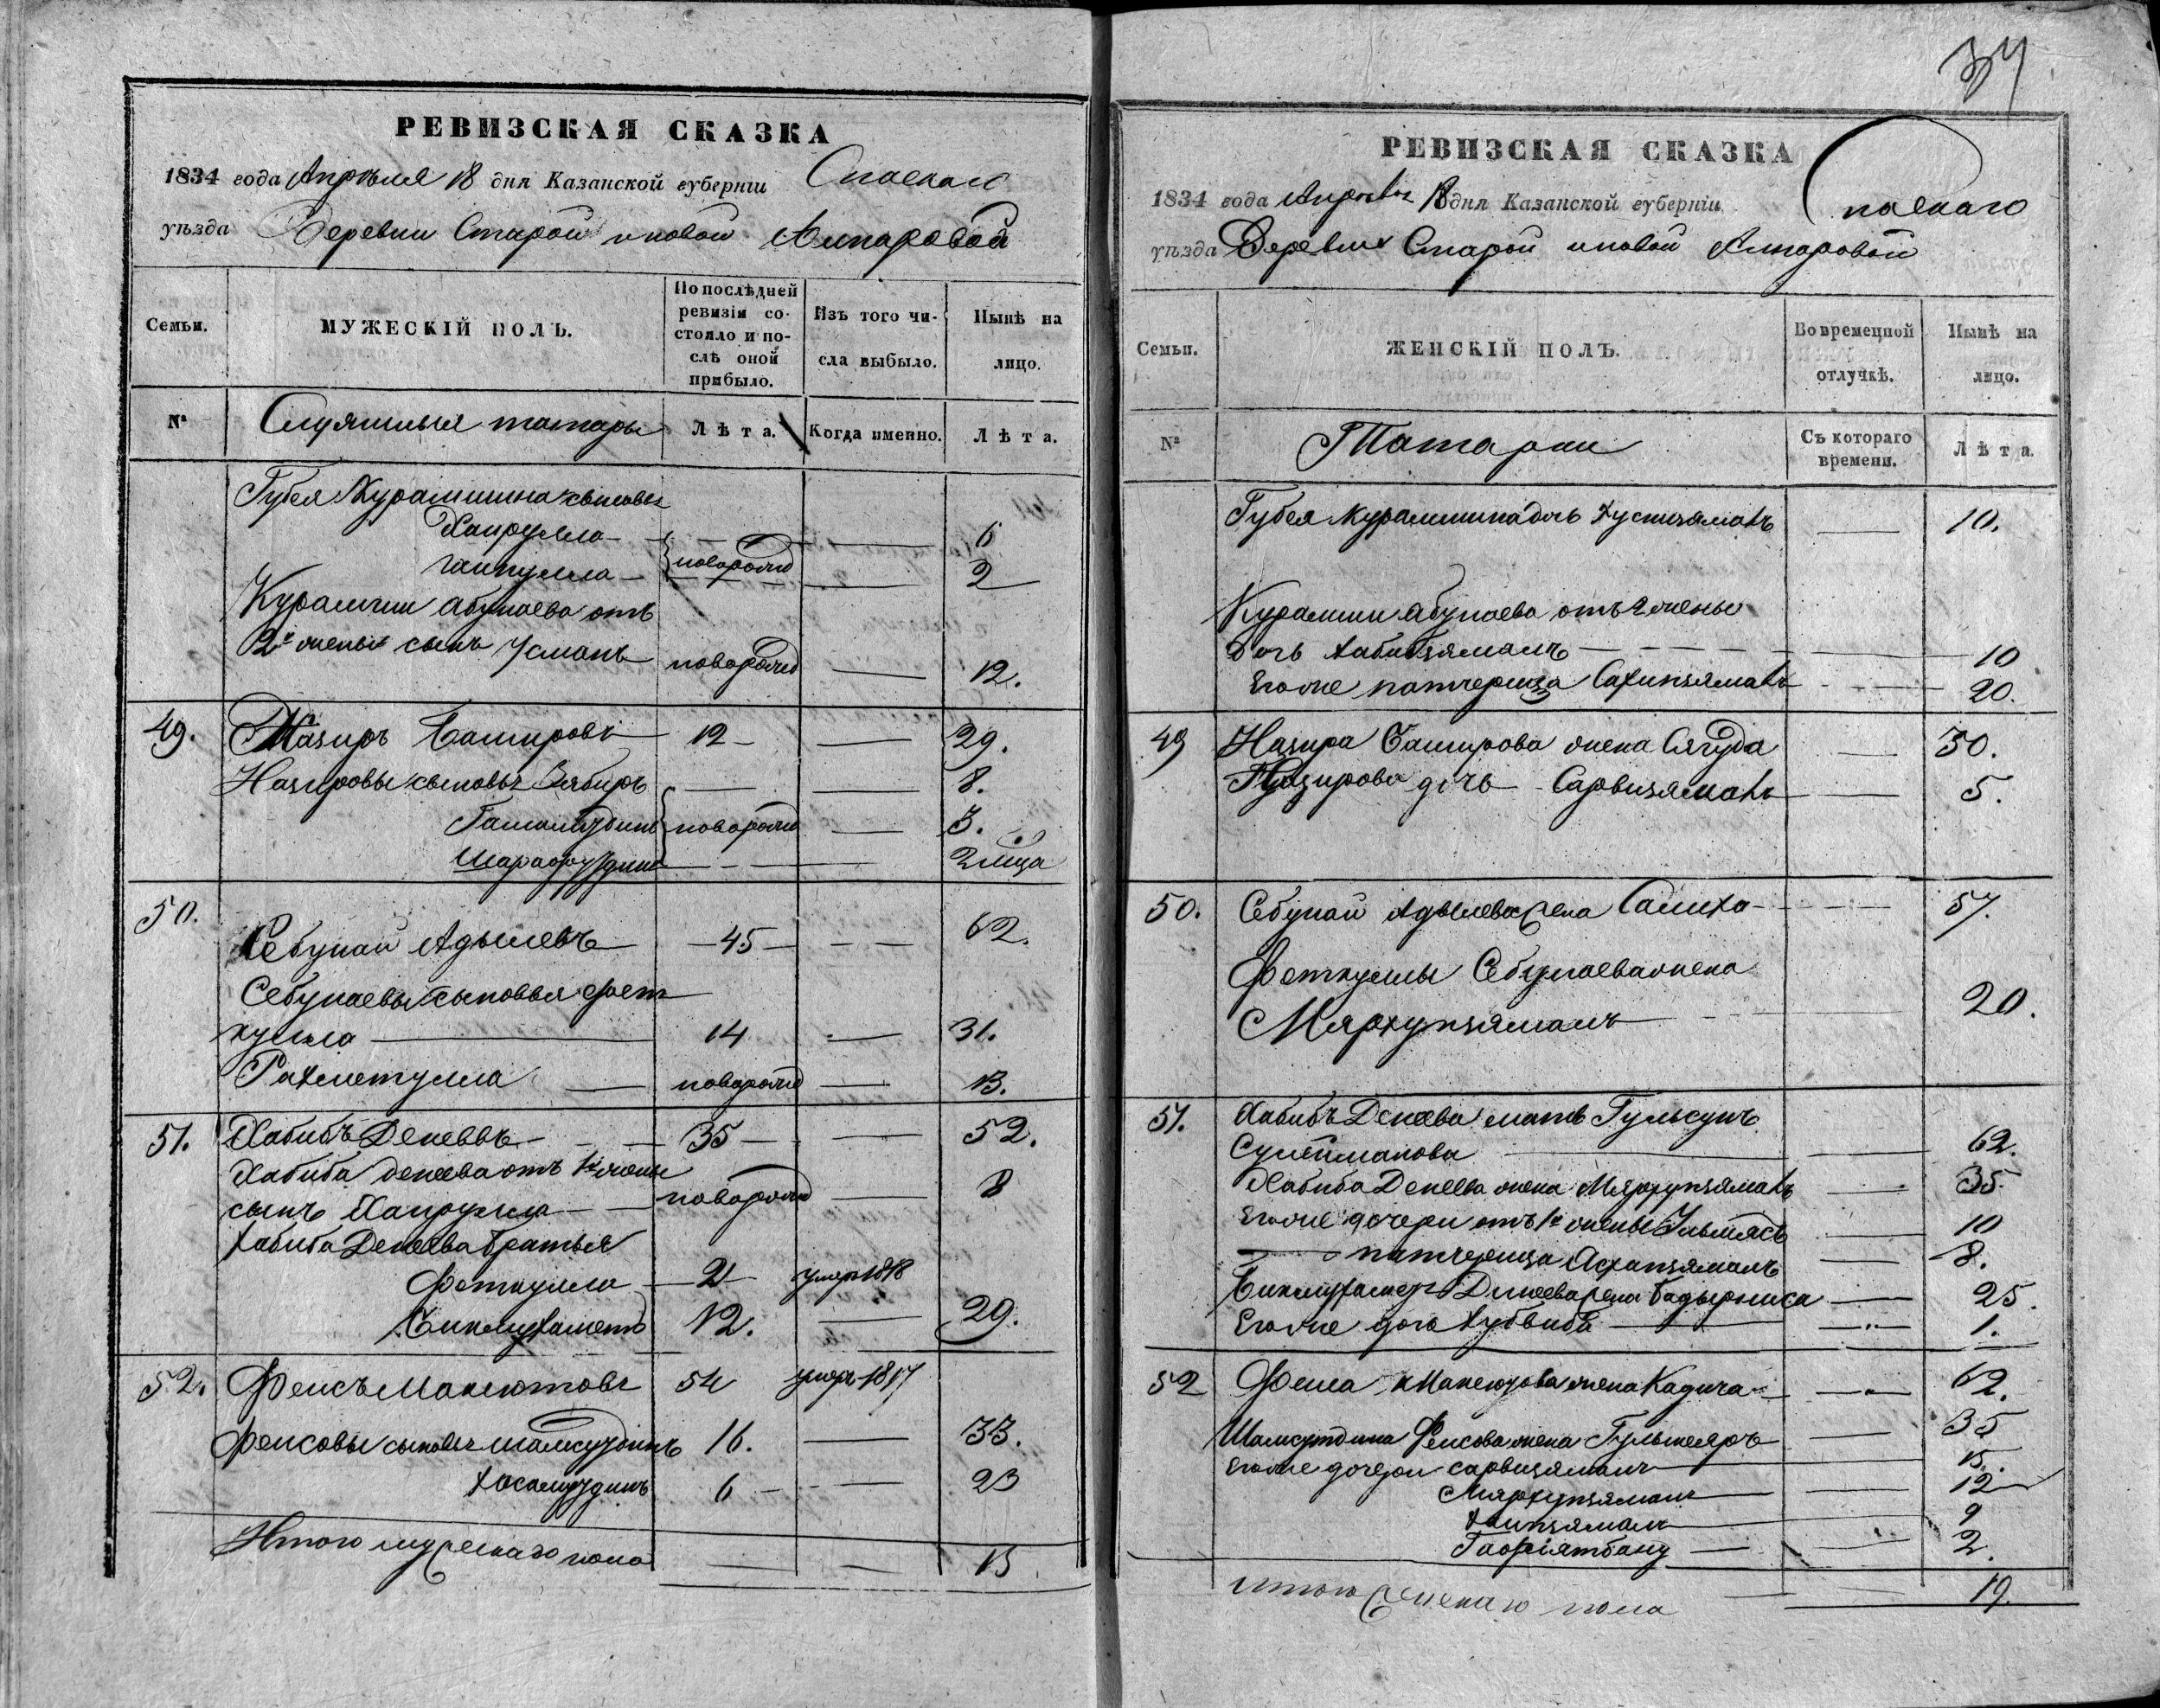 РЕВИЗСКАЯ СКАЗКА
1834 года Апрѣля 18 дня Казанской губерніи Спаскаго
уѣзда Деревни Старой и новой Ампаровой
Семьи.
МУЖЕСКІЙ ПОЛЪ.
По послѣдней ревизіи состояло и послѣ оной прибыло.
Изъ того числа выбыло.
Нынѣ на лицо.
№
Служилыя татары
Лѣта.
Когда именно.
Лѣта.
Губея Курамшина сыновья
Хайрулла 6
новорожд
2
Курамши Абупаева отъ
2й жены сынъ Усманъ новорожд 12.
49. Назиръ Башировъ 12 29.
Назировы сыновья 8.
новорожд 3.
Шарафутдинъ 2 мѣца
50.
Себупай Адылевъ 45 62.
Себупаевы сыновья Фет
кулла 14 31.
Рахметулла новорожд 13.
51. Хабибъ Денеевъ 35 52.
Хабиба Денеева отъ 1й жены
сынъ Хайрулла новорожд 8
Хабиба Денеева братья
Феткулла 21 умеръ 1818
Бикмухаметъ 12. 29.
52. Феисъ Макютовъ 54 умеръ 1817
Феисовы сыновья Шамсутдинъ 16. 33.
Хисамутдинъ 6 23
Итого мужескаго пола 13
34
РЕВИЗСКАЯ СКАЗКА
1834 года Апрѣля 18 дня Казанской губерніи Спаскаго
уѣзда Деревни Старой и новой Ампаровой
Семьи.
ЖЕНСКІЙ ПОЛЪ.
Во временной отлучкѣ.
Нынѣ на лицо.
№
Татарки
Съ котораго времени.
Лѣта.
Губея Курамшина дочь Хуснизямалъ 10.
Курамши Абупаева отъ 2 жены
дочь Хабибзямалъ 10
Его же патчерица Сахипзямалъ 20.
49 Назира Баширова жена Сягида 30.
Назирова дочь Сарвизямалъ 5.
50. Себупай Адылева жена Салиха 57.
Феткуллы Себупаева жена
Мярхупзямалъ 20.
51. Хабибъ Денеева мать Гульсумъ
Сулейманова 62.
Хабиба Денеева жена Мярхупзямалъ 35.
Его же дочери отъ 1й жены 10
патчерица 8.
Бикмухаметъ Динеева жена Бадырниса 25.
Его же дочь Хубвиба 1.
52 Феиса Макютова жена Кадича 62.
Шамсутдина Феисова жена Гульмеяръ 35
Его же дочери Сарвизямалъ 15.
Мярхупзямалъ 12
9
2.
Итого женскаго пола 19.